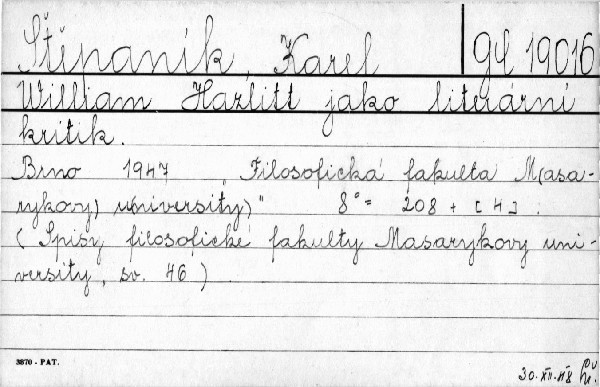 Štěpaník, Karel gd 19016
William Hazlitt jako literární
kritik.
Brno 1947 „Filosofická fakulta M(asa-
rykovy) university)" 8° = 208 + [4].
(Spisy filosofické fakulty Masarykovy uni-
versity, sv. 46)
3870 - PAT.
30.XII.48